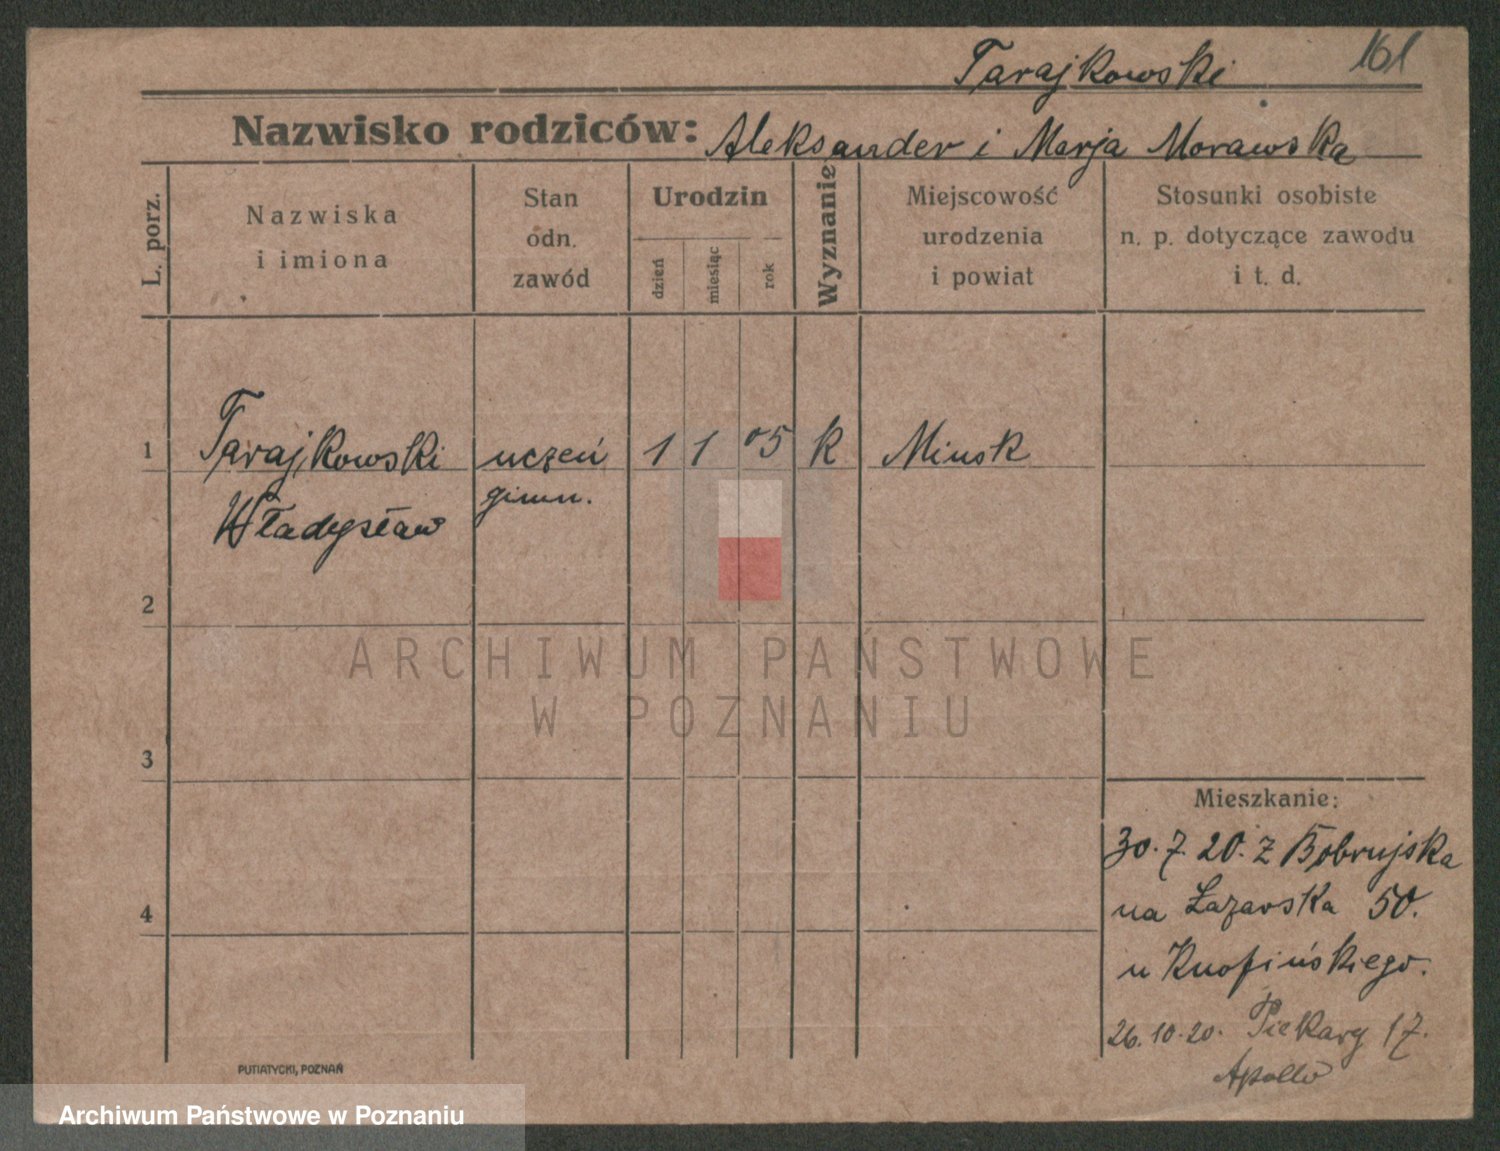 Tarajkowski 161
Nazwisko rodziców: Aleksander i Marja Morawska
L. porz.
Nazwiska
i imiona
Stan
odn.
zawód
Urodzin
dzień
miesiąc
rok
Wyznanie
Miejscowość
urodzenia
i powiat
Stosunki osobiste
n. p. dotyczące zawodu
i t. d.
1 Tarajkowski uczeń 1 1 05 k Minsk
Władysław gimn.
2
ARCHIWUM PAŃSTWOWE
W POZNANIU
3
Mieszkanie:
30.7.20. z Bobrujska
4
na Łazarska 50.
u Knofińskiego.
26.10.20. Piekary 17.
Apollo
PUTIATYCKI, POZNAŃ
Archiwum Państwowe w Poznaniu